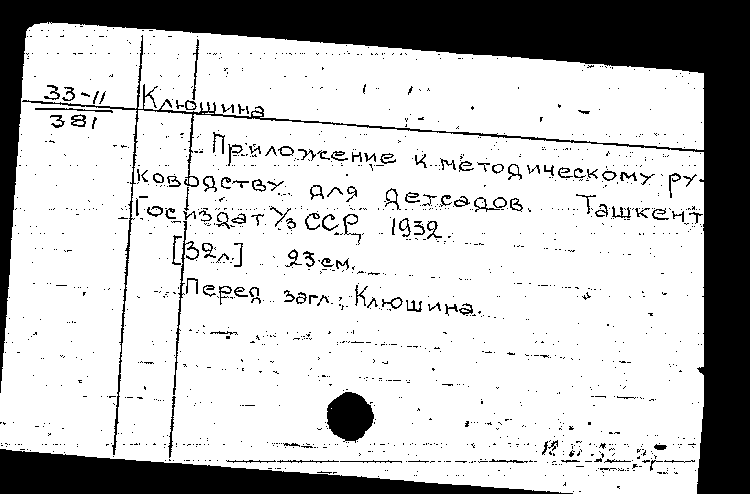 33-11
381
Клюшина
Приложение к методическому ру-
ководству для детсадов. Ташкент
Госиздат УзССР, 1932.
[32л.] 23 см.
Перед загл.: Клюшина.